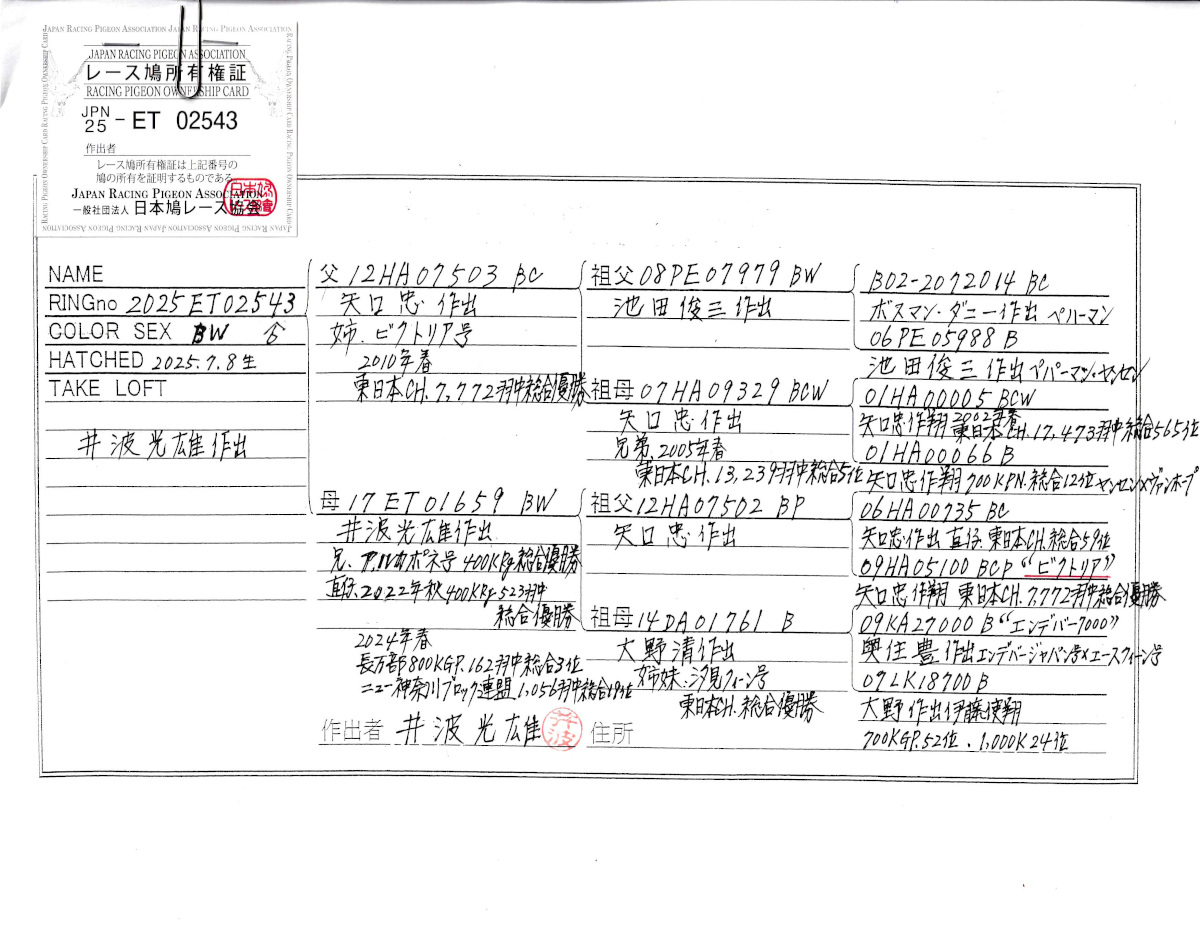 JAPAN RACING PIGEON ASSOCIATION
レース鳩所有権証
RACING PIGEON OWNERSHIP CARD
JPN
25 - ET 02543
作出者
レース鳩所有権証は上記番号の
鳩の所有を証明するものである。
JAPAN RACING PIGEON ASSOCIATION
一般社団法人 日本鳩レース協会
NAME
RINGno 2025ET02543
COLOR SEX BW ♂
HATCHED 2025.7.8生
TAKE LOFT
井波光雄作出
父 12HA07503 BC
矢口 忠 作出
姉.ビクトリア号
2010年春
東日本CH.7,772羽中総合優勝
母 17ET01659 BW
井波光雄作出
兄、アルカポネ号 400KRg総合優勝
直仔、2022年秋400KRg 523羽中
総合優勝
2024年春
長万部800KGP.162羽中総合3位
ニュー神奈川ブロック連盟1,056羽中総合19位
作出者 井波光雄
井波
祖父 08PE07979 BW
池田俊三作出
祖母 07HA09329 BCW
矢口忠作出
兄弟.2005年春
東日本CH.13,239羽中総合5位
祖父 12HA07502 BP
矢口忠作出
祖母 14DA01761 B
大野清作出
姉妹.汐見クィーン号
東日本CH.総合優勝
住所
B02-2072014 BC
ボスマン・ダニー作出 ペパーマン
06PE05988 B
池田俊三作出ペパーマン・ヤンセン
01HA00005 BCW
矢口忠作翔 2002年春
東日本CH.17,473羽中総合565位
01HA00066 B
矢口忠作翔 700KPN.総合12位ヤンセン×ヴァンホープ
06HA00735 BC
矢口忠作出 直仔.東日本CH.総合59位
09HA05100 BCP "ビクトリア"
矢口忠作翔 東日本CH.7,772羽中総合優勝
09KA27000 B "エンデバー7000"
奥住豊作出エンデバージャパン号×エースクィーン号
07LK18700 B
大野作出伊藤使翔
700KGP.52位.1,000K24位